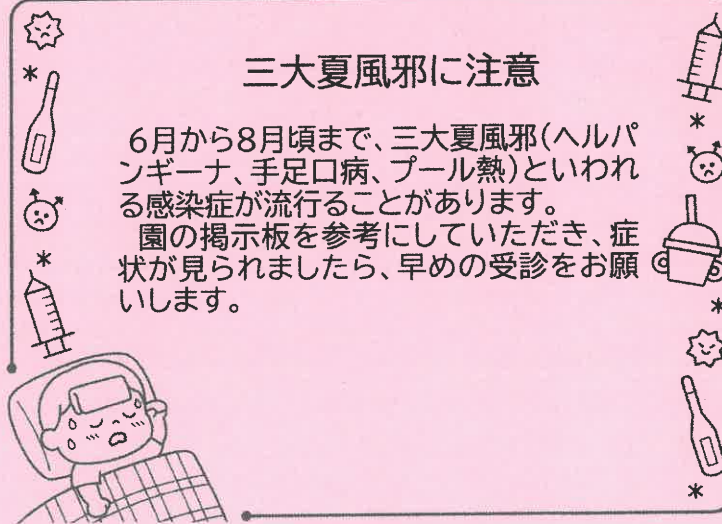 三大夏風邪に注意
6月から8月頃まで、三大夏風邪(ヘルパ
ンギーナ、手足口病、プール熱)といわれ
る感染症が流行ることがあります。
園の掲示板を参考にしていただき、症
状が見られましたら、早めの受診をお願
いします。